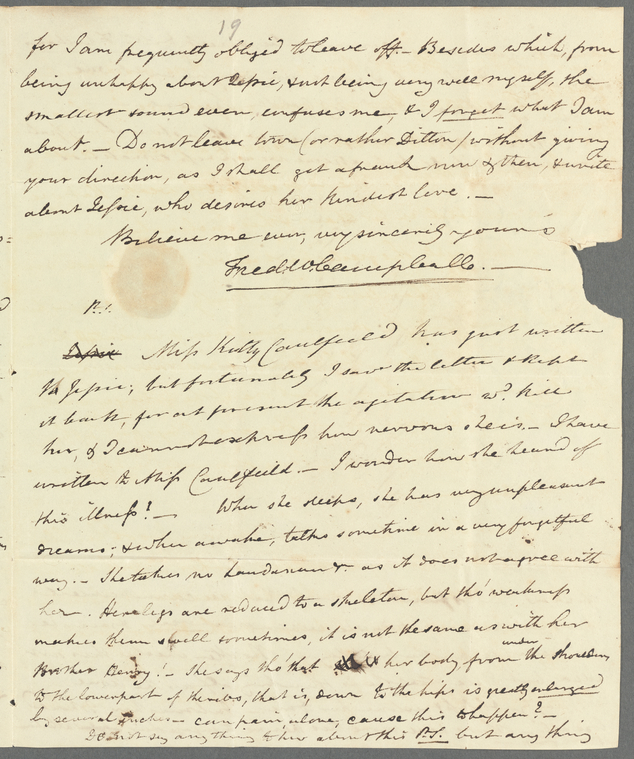 19
for I am frequently obliged to leave off. — Besides which, from
being unhappy about Jessie, & not being very well myself, the
smallest sound even, confuses me, & I forget what I am
about. — Do not leave town (or rather Ditton) without giving
your direction, as I shall get a frank now & then, & write
about Jessie, who desires her kindest love. —
Believe me ever, very sincerely yours
P.S.
Jessie Miss Kitty Caulfeild has just written
to Jessie; but fortunately I saw the letter & kept
it back, for at present the agitation wd. kill
her, & I cannot express how nervous she is. — I have
written to Miss Caulfeild. — I wonder how she heard of
this illness! — When she sleeps, she has very unpleasant
dreams; & when awake, talks sometime in a very forgetful
way. — She takes no laudanum as it does not agree with
her. Her legs are reduced to a skeleton, but tho' weakness
makes them swell sometimes, it is not the same as with her
Brother Henry! — She says tho' that her body from under the shoulders
to the lower part of the ribs, that is, down to the hips is greatly enlarged
by several inches — can pain, alone, cause this to happen? —
Do not say any thing to her about this P.S. but any thing